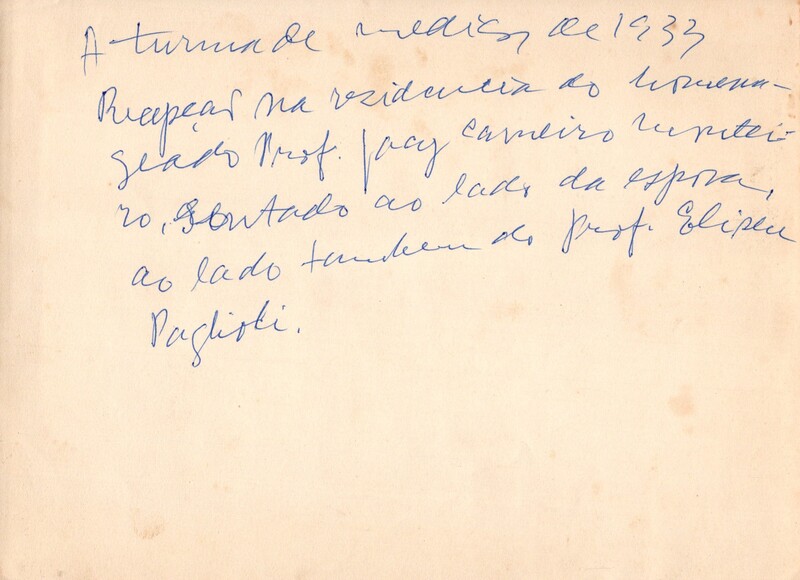 A turma de medicos de 1933
Recepção na residencia do homena-
geado Prof. Jacy Carneiro Montei-
ro, sentado ao lado da esposa,
ao lado tambem do Prof. Eliseu
Paglioli.